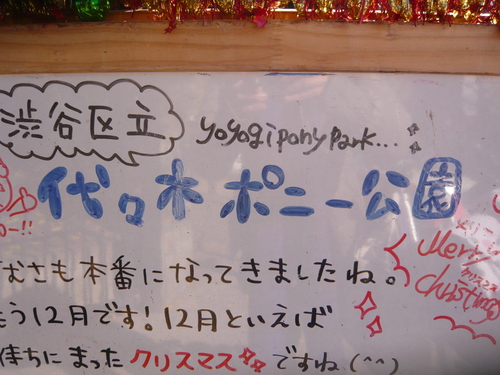 渋谷区立
yoyogi pony park...
代々木ポニー公園
むさも本番になってきましたね。
もう12月です!12月といえば
待ちにまったクリスマスですね(^^)
Merry
christmas